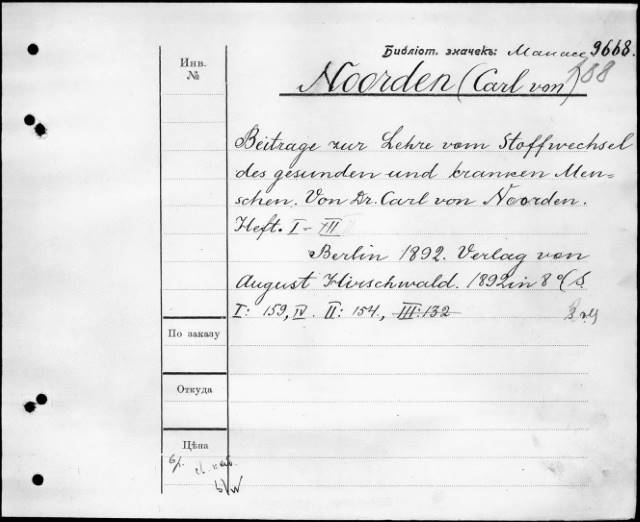 Библіот. значекъ: Манасс 9668.
Инв.
№
Noorden (Carl von) 188
Beitrage zur Lehre vom Stoffwechsel
des gesunden und kranken Men=
schen. Von Dr. Carl von Noorden.
Heft. I - III
Berlin 1892. Verlag von
August Hirschwald. 1892 in 8°(S.
I: 159, IV. II: 154, III: 132
По заказу
Откуда
Цѣна